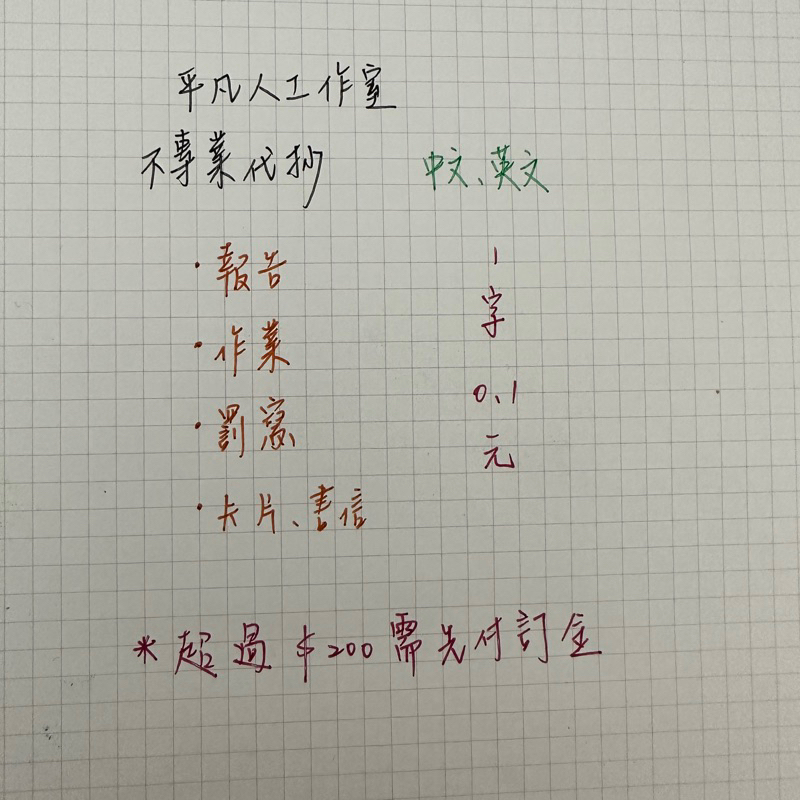 平凡人工作室
不專業代抄 中文、英文
·報告
·作業
·罰寫
·卡片、書信
1
字
0.1
元
*超過$200需先付訂金